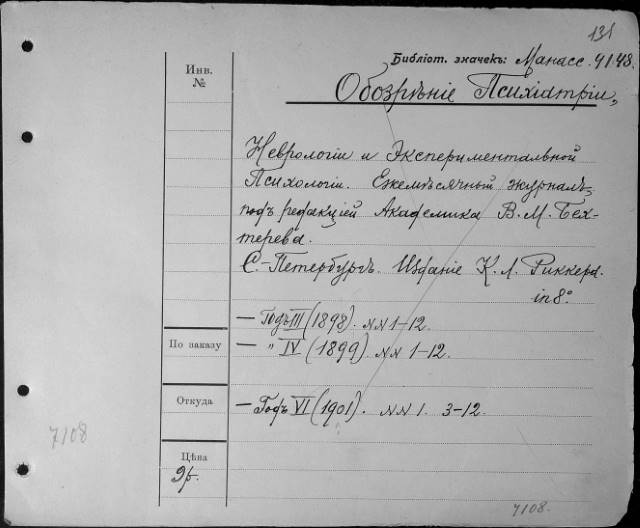 131
Библіот. значекъ: Манасс. 4148.
Инв.
№
Обозрѣніе Психіатріи,
Неврологіи и Экспериментальной
Психологіи. Ежемѣсячный журналъ
подъ редакціей Академика В. М. Бех-
терева.
С.-Петербургъ. Изданіе К. Л. Риккера.
in 8°.
— Годъ III (1898). NN 1-12.
По наказу
— " IV (1899). NN 1-12.
Откуда
— Годъ VI (1901). NN 1. 3-12.
7108
Цѣна
9р.
7108.